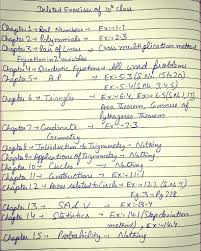 Deleted Exercises of 10th class
Chapter 1 → Real Numbers → Ex:-1.1
Chapter 2 → Polynomials → Ex:-2.3
Chapter 3 → Pair of Lines → Cross multiplication method
Equation in 2 variables
Chapter 4 → Quadratic Equations → All word problems
Chapter 5 → A.P → Ex:-5.3
Ex:-5.4
Chapter 6 → Triangles → Ex:-6.4, Ex:-6.5
Area Theorem, Converse of
Pythagoras Theorem
Chapter 7 → Coordinate → Ex:-7.3
Geometry
Chapter 8 → Introduction to Trigonometry → Nothing
Chapter 9 → Applications of Trigonometry → Nothing
Chapter 10 → Circles → Nothing
Chapter 11 → Constructions → Ex:-11.1
Chapter 12 → Areas related to Circles → Ex:-12.2
Chapter 13 → SA & V → Ex:-13.4
Chapter 14 → Statistics → Ex:-14.1 (Step deviation
method), Ex:-14.4
Chapter 15 → Probability → Nothing